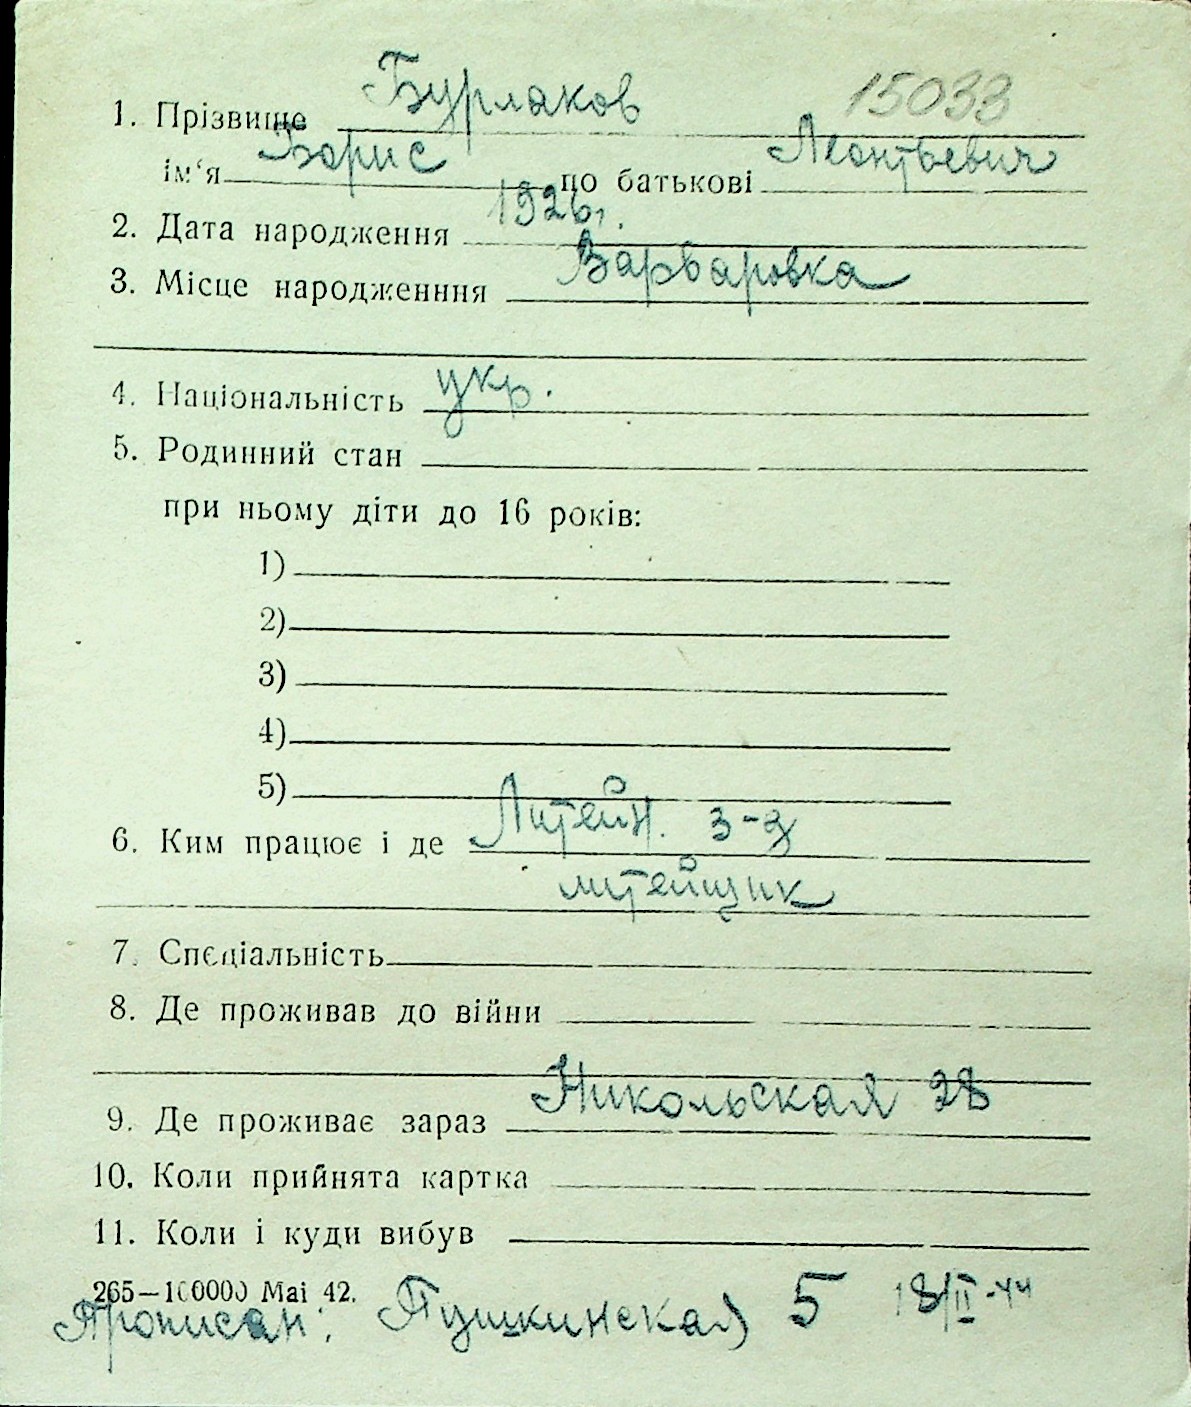 1. Прізвище Бурлаков 15033
ім‘я Борис по батькові Леонтьевич
2. Дата народження 1926г.
3. Місце народженння Варваровка
4. Національність укр.
5. Родинний стан
при ньому діти до 16 років:
1)
2)
3)
4)
5)
6. Ким працює і де Литейн. з-д
литейщик
7. Спєціальність
8. Де проживав до війни
9. Де проживає зараз Никольская 28
10. Коли прийнята картка
11. Коли і куди вибув
265—100000 Mai 42.
Прописан: Пушкинская 5 18/II-44